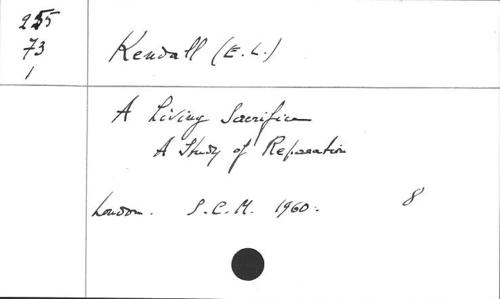 255
73
1
Kendall (E. L.)
A Living Sacrifice
A Study of Reparation
London. S.C.M. 1960. 8